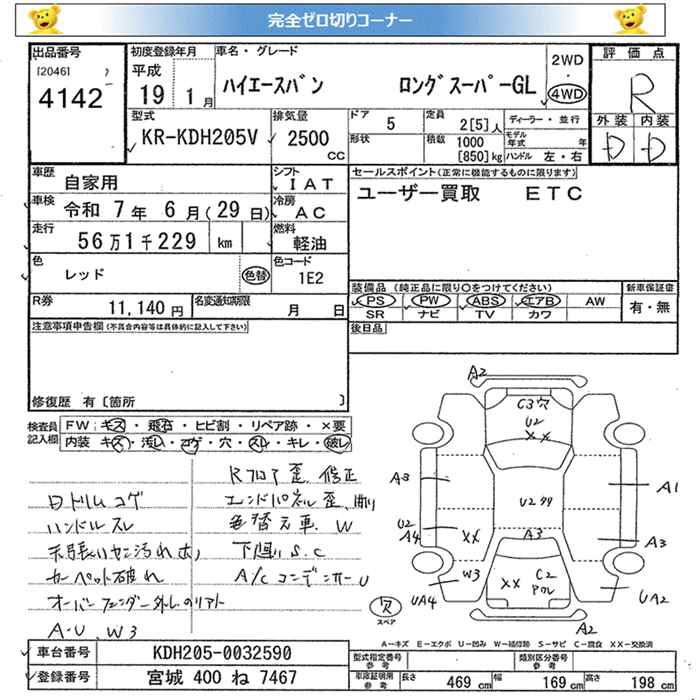 完全ゼロ切りコーナー
出品番号
[20461 )
4142
初度登録年月
平成
19 1月
車名・グレード
ハイエースバン ロングスーパーGL
2WD
・
4WD
評価点
R
外装 内装
D D
型式
KR-KDH205V
排気量
2500
CC
ドア
5
形状
定員
2[5]人
積載 1000
[850]kg
ディーラー・並行
モデル
年式 年
ハンドル 左・右
車歴
自家用
シフト
IAT
車検 令和 7年 6月(29日)
冷房
AC
走行
56万1千229 km
燃料
軽油
色
レッド
色替
色コード
1E2
セールスポイント(正常に機能するものに限ります)
ユーザー買取 ETC
装備品 (純正品に限り○をつけてください)
新車保証書
PS PW ABS エアB AW
SR ナビ TV カワ
有・無
R券
11,140円
名変通知期限
月 日
後日品
注意事項申告欄(不具合内容等は具体的に記入して下さい)
修復歴 有〔箇所 〕
検査員
記入欄
FW:キズ・飛石・ヒビ割・リペア跡・×要
内装:キズ・汚レ・コゲ・穴・スレ・キレ・破レ
Rフロア歪、修正
日ドリムコゲ
エンドパネル歪、削り
ハンドルスレ
色替え車 W
天張ハヤシ汚れ大
下廻りS、C
カーペット破れ
A/CコンデンサーU
オーバーフェンダー外しのリアト
A・U、W3
A2
C3穴
U2
XX
A3
A1
U2タタ
U2
A4
XX
A3
A3
W3
XX
C2
アル
UA4
UA2
欠
スペア
A2
A-キズ E-エクボ U-凹み W-補修跡 S-サビ C-腐食 XX-交換済
車台番号
KDH205-0032590
登録番号
宮城 400 ね 7467
型式指定番号
参考
類別区分番号
参考
車庫証明用
参考
長さ 469 cm
幅 169 cm
高さ 198 cm